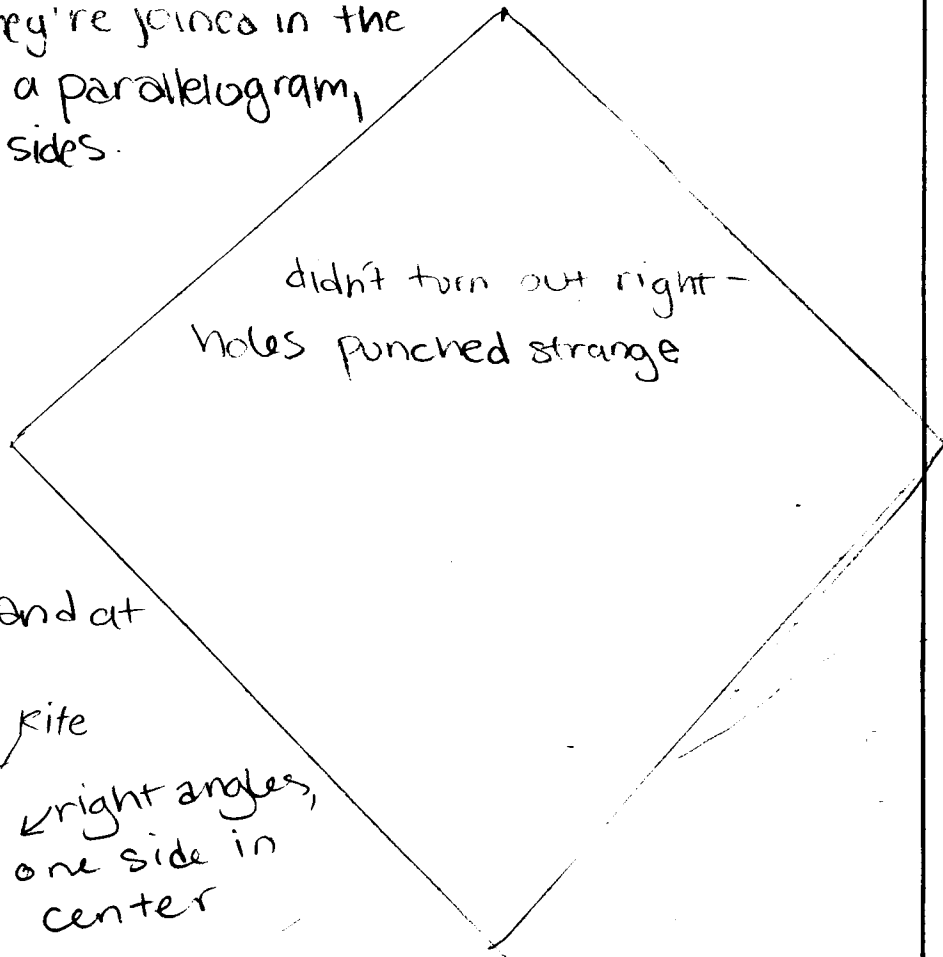 ey're joined in the
a parallelogram,
sides.
didn't turn out right -
holes punched strange
and at
kite
right angles,
one side in
center